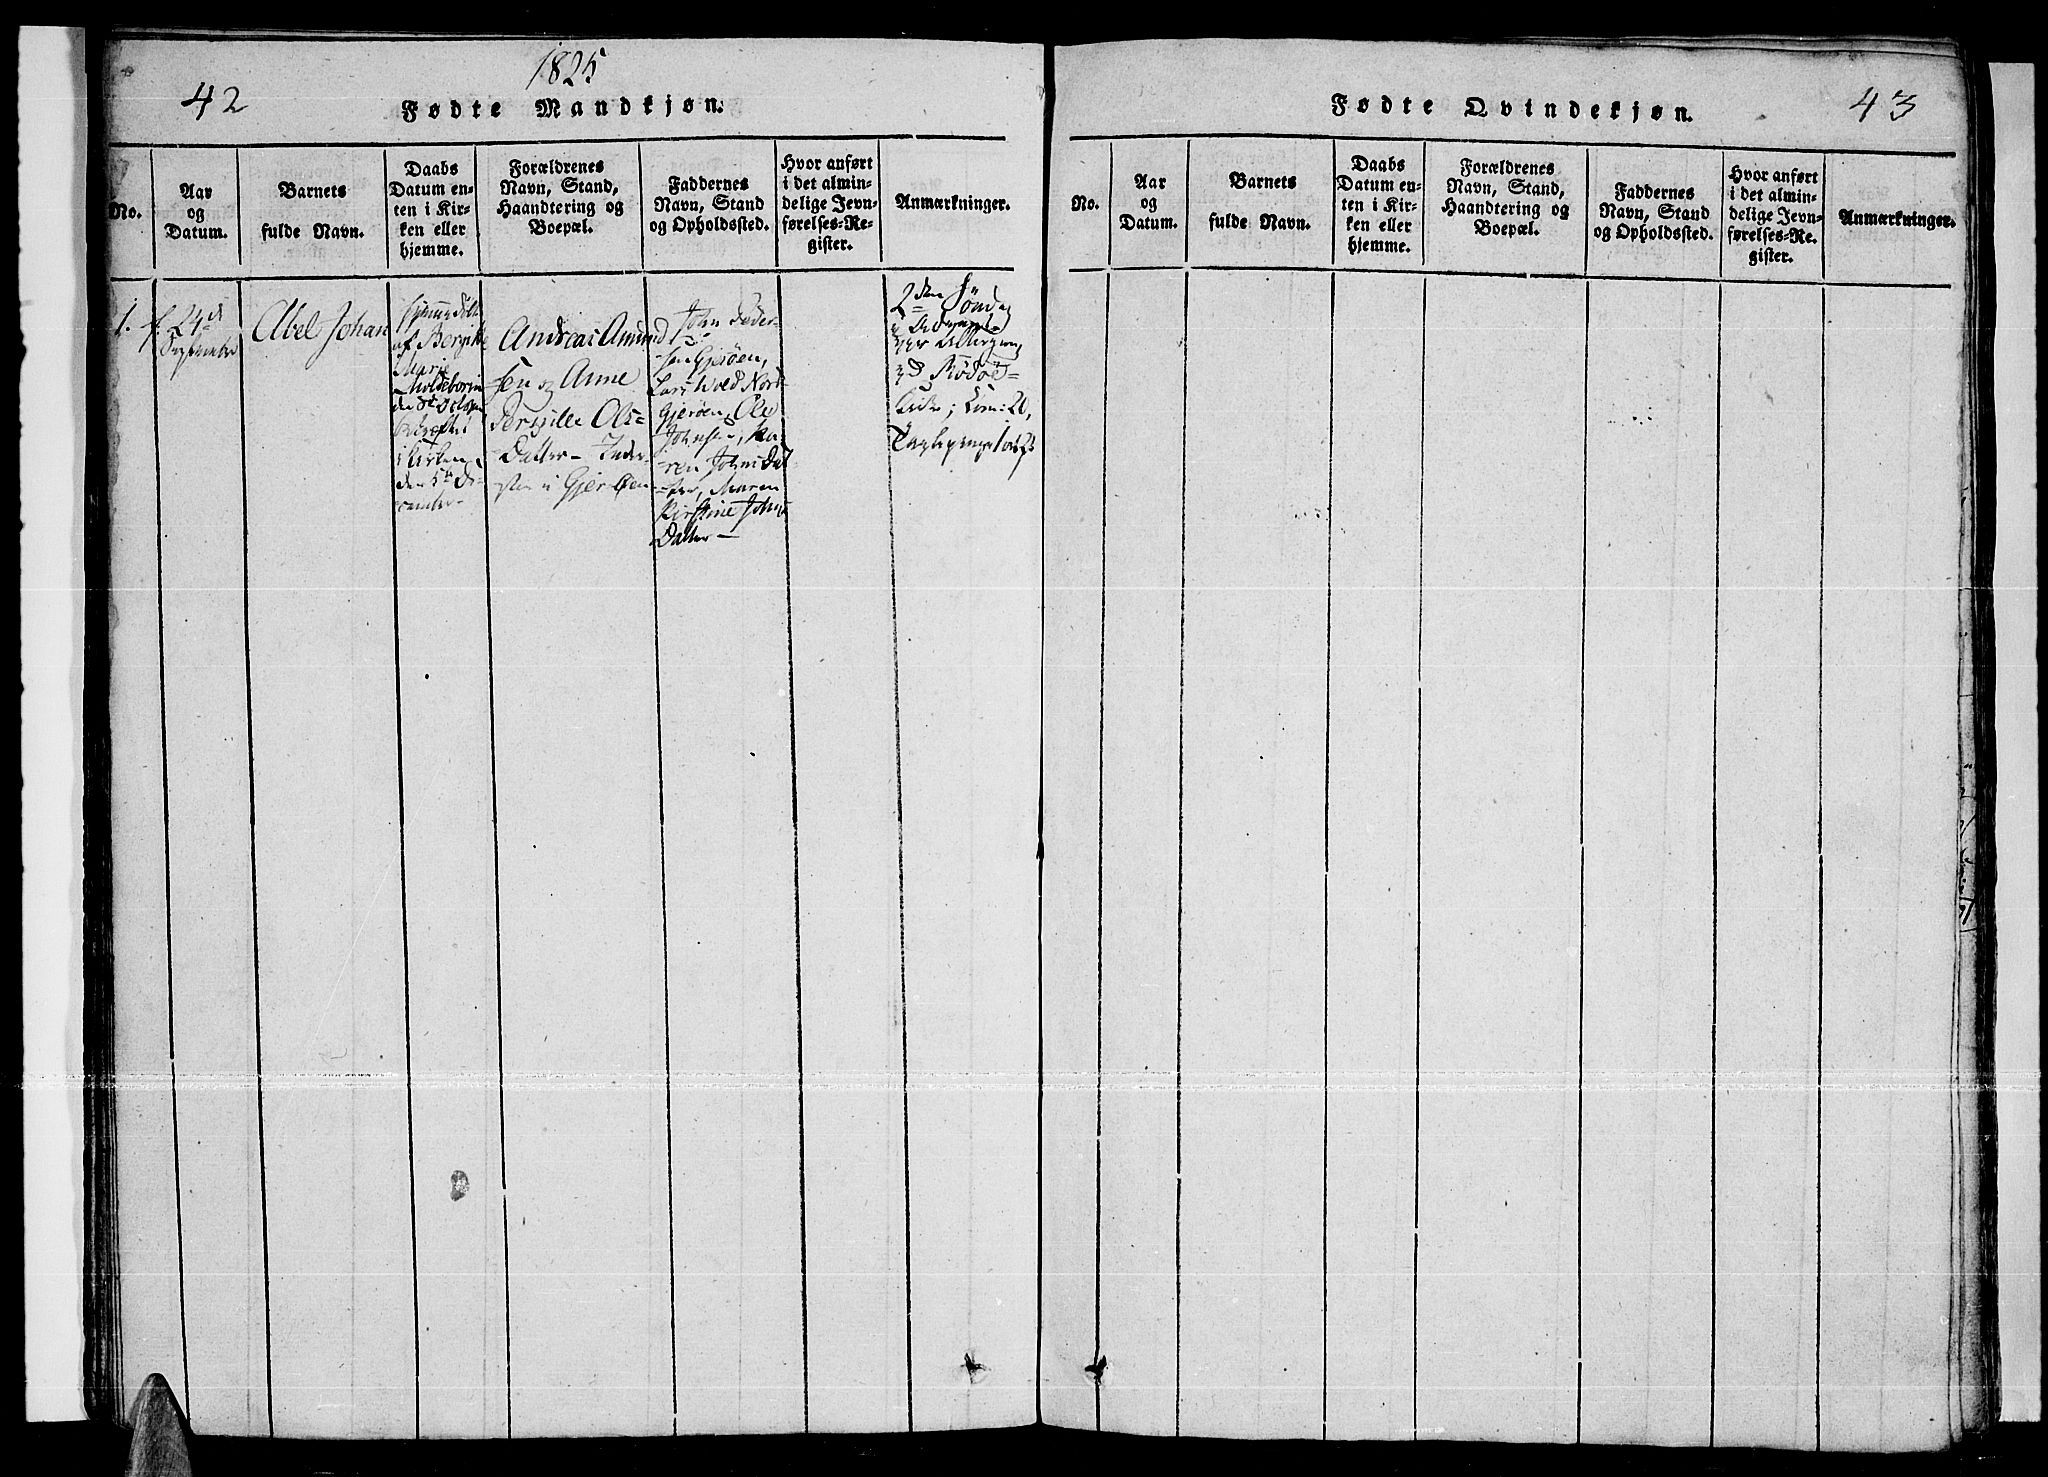 1825
42
Fødte Mandkjøn.
No.
Aar
og
Datum.
Barnets
fulde Navn.
Daabs
Datum en-
ten i Kir-
ken eller
hjemme.
Forældrenes
Navn, Stand,
Haandtering og
Boepæl.
Faddernes
Navn, Stand
og Opholdssted.
Hvor anført
i det almin-
delige Jevn-
førelses-Re-
gister.
Anmærkninger.
1.
f. 24d
September
Abel Johan
af Bergitte
Marie
den
i Kirken
den 5te De-
cember
Andreas Amund
sen og Anne
Pernille Ols-
Datter - Inder-
ster i Gjerøen
John Peder-
sen Gjerøen,
Lars Wold Nord-
Gjerøen, Ole
Johnsen, Ka-
ren Johns Dat
ter, Maren
Kirstine Johns
Datter -
2den Søndag
i Advent
Rødøe
Kirke;
Fødte Qvindekjøn.
43
No.
Aar
og
Datum.
Barnets
fulde Navn.
Daabs
Datum en-
ten i Kir-
ken eller
hjemme.
Forældrenes
Navn, Stand,
Haandtering og
Boepæl.
Faddernes
Navn, Stand
og Opholdssted.
Hvor anført
i det almin-
delige Jevn-
førelses-Re-
gister.
Anmærkninger.